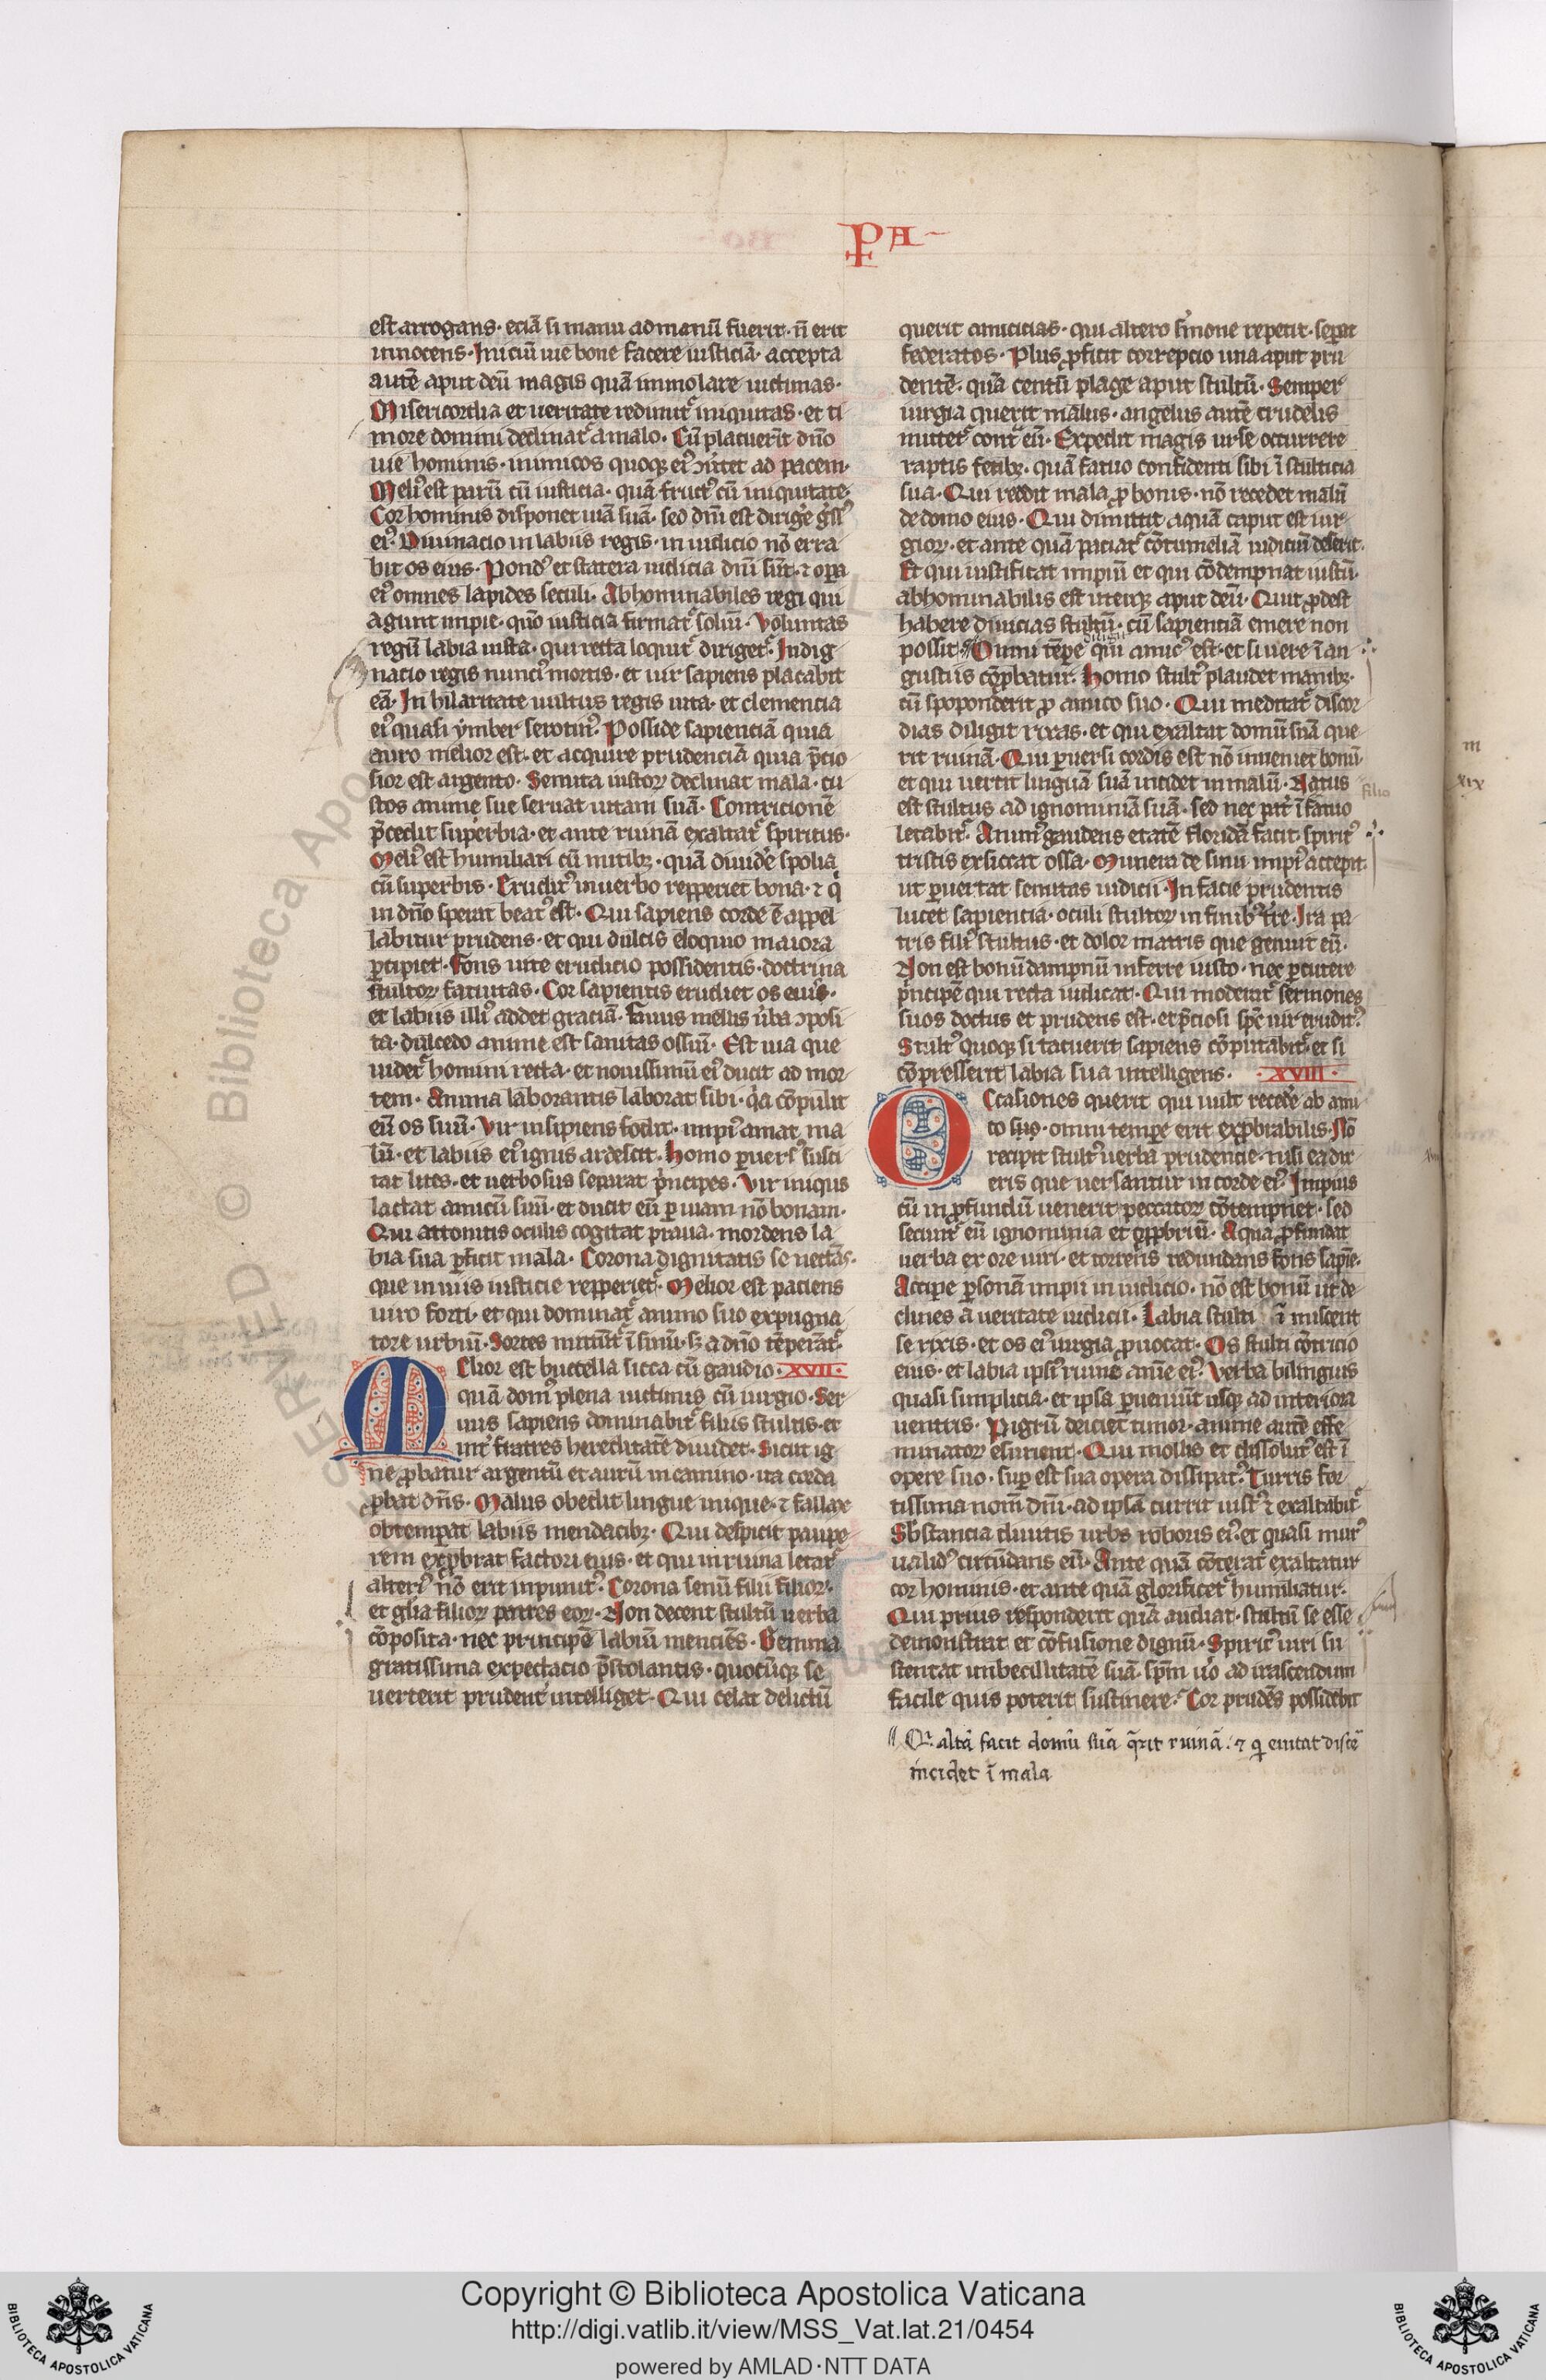 PA
est arrogans · eciā si manu ad manū fuerit · n̄ erit
innocens · Iniciū uie bone facere iusticiā · accepta
autē aput deū magis quā immolare uictimas ·
Misericordia et ueritate redimit᷑ iniquitas · et ti
more domini declinat᷑ a malo · Cū placuerit dn̄o
uie hominis · inimicos quoqꝫ eiꝰ ↄuˀtet ad pacem ·
Meliꝰ est parū cū iusticia · quā fructꝰ cū iniquitate ·
Cor hominis disponet uiā suā · sed dn̄i est dirigˀe gˀssꝰ
eiꝰ · Diuinacio in labiis regis · in iudicio nō erra
bit os eius · Pondꝰ et statera iudicia dn̄i sūt · ⁊ oꝑa
eiꝰ omnes lapides seculi · Abhominabiles regi qui
agunt impie · quō iusticia firmat᷑ soliū · Voluntas
regū labia iusta · qui recta loquit᷑ diriget᷑ · Indig
nacio regis nuncꝰ mortis · et uir sapiens placabit
eā · In hilaritate uultus regis uita · et clemencia
eiꝰ quasi ymber serotinꝰ · Posside sapienciā quia
auro melior est · et acquire prudenciā quia p̄cio
sior est argento · Semita iustoꝝ declinat mala · cu
stos anime sue seruat uitam suā · Contricionē
p̄cedit superbia · et ante ruinā exaltat᷑ spiritus ·
Meliꝰ est humiliari cū mitibꝫ · quā diuidˀe spolia
cū superbis · Eruditꝰ in uerbo repperiet bona · ⁊ q̇
in dn̄o sperat beatꝰ est · Qui sapiens corde ē appel
labitur prudens · et qui dulcis eloquio maiora
ꝑcipiet · Fons uite erudicio possidentis · doctrina
stultoꝝ fatuitas · Cor sapientis erudiet os eius ·
et labiis illiꝰ addet graciā · Fauus mellis uˀba ↄposi
ta · dulcedo anime est sanitas ossiū · Est uia que
uidet᷑ homini recta · et nouissimū eiꝰ ducit ad mor
tem · Anima laborantis laborat sibi · qͣa cōpulit
eū os suū · Vir insipiens fodit · impiꝰ amat ma
lū · et labiis eiꝰ ignis ardescit · Homo ꝑuersꝰ susci
tat lites · et uerbosus separat pˀncipes · Vir iniqus
lactat amicū suū · et ducit eū ꝑ uiam nō bonam ·
Qui attonitis oculis cogitat praua · mordens la
bia sua ꝑficit mala · Corona dignitatis senectꝰ ·
que in uiis iusticie repperiet᷑ · Melior est paciens
uiro forti · et qui dominat᷑ animo suo expugna
tore urbiū · Sortes mittūt᷑ ī sinū · sꝫ a dn̄o tēperāt᷑ ·
Melior est buccella sicca cū gaudio · XVII ·
quā domꝰ plena uictimis cū iurgio · Ser
uus sapiens dominabit᷑ filiis stultis · et
intˀ fratres hereditatē diuidet · Sicut ig
ne ꝓbatur argentū et aurū in camino · ita corda
ꝓbat dn̄s · Malus obedit lingue inique · ⁊ fallax
obtemꝑat labiis mendacibꝫ · Qui despicit paupe
rem exꝓbrat factori eius · et qui in ruina letat᷑
alteriꝰ nō erit inpunitꝰ · Corona senū filii filioꝝ ·
et gl̄ia filioꝝ patres eoꝝ · Non decent stultū uerba
cōposita · nec principē labiū menciēs · Gemma
gratissima expectacio p̄stolantis · quocūqꝫ se
uerterit prudentˀ intelliget · Qui celat delictū
querit amicicias · qui altero sˀmone repetit · seꝑat
federatos · Plus ꝓficit correpcio una aput pru
dentē · quā centū plage aput stultū · Semper
iurgia querit malus · angelus autē crudelis
mittet᷑ contˀ eū · Expedit magis urse occurrere
raptis fetibꝫ · quā fatuo confidenti sibi ī stulticia
sua · Qui reddit mala ꝓ bonis · nō recedet malū
de domo eius · Qui dimittit aquā caput est iur
gioꝝ · et ante quā paciat᷑ cōtumeliā iudiciū deserit ·
Et qui iustificat impiū et qui cōdempnat iustū ·
abhominabilis est uterqꝫ aput deū · Quit ꝓdest
habere diuicias stultū · cū sapienciā emere non
possit · Omni tēpe diligit qui amicꝰ est · et si uere ī an
gustiis cōꝓbatur · Homo stultꝰ plaudet manibꝫ ·
cū spoponderit ꝓ amico suo · Qui meditat᷑ discor
dias diligit rixas · et qui exaltat domū suā que
rit ruinā · Qui ꝑuersi cordis est nō inueniet bonū ·
et qui uertit linguā suā incidet in malū · Natus
est stultus ad ignominiā suā · sed nec pat̄ ī fatuo filio
letabit᷑ · Animꝰ gaudens etatē floridā facit · spiritꝰ
tristis exsiccat ossa · Munera de sinu impiꝰ accepit ·
ut ꝑuertat semitas iudicii · In facie prudentis
lucet sapiencia · oculi stultoꝝ in finibꝰ tˀre · Ira pa
tris filiꝰ stultus · et dolor matris que genuit eū ·
Non est bonū dampnū inferre iusto · nec ꝑcutere
pˀncipē qui recta iudicat · Qui moderat᷑ sermones
suos doctus et prudens est · et p̄ciosi sp̄c uir eruditꝰ ·
Stultꝰ quoqꝫ si tacuerit sapiens cōputabit᷑ · et si
cōpresserit labia sua intelligens · XVIII ·
Occasiones querit qui uult recedˀe ab ami
co suo · omni tempe erit exꝓbrabilis · Nō
recipit stultꝰ uerba prudencie · nisi ea dix
eris que uersantur in corde eiꝰ · Impius
cū in ꝓfundū uenerit peccatoꝝ cōtempnet · sed
secunt᷑ eū ignominia et opꝓbriū · Aqua ꝓfunda
uerba ex ore uiri · et torrens redundans fons sapiē ·
Accipe ꝑsonā impii in iudicio · nō est bonū ut de
clines a ueritate iudicii · Labia stulti ī miscent
se rixis · et os eiꝰ iurgia ꝓuocat · Os stulti cōtricio
eius · et labia ipsiꝰ ruine anīe eiꝰ · Verba bilinguis
quasi simplicia · et ipsa ꝑueniūt usqꝫ ad interiora
uentris · Pigrū deiciet timor · anime autē effe
minatoꝝ esurient · Qui mollis et dissolutꝰ est ī
opere suo · frater est sua opera dissipātˀ · Turris for
tissima nom̄ dn̄i · ad ipsā currit iustꝰ ⁊ exaltabit᷑
Sb̄stancia diuitis urbs roboris eiꝰ · et quasi murꝰ
ualidꝰ circūdans eū · Ante quā cōterat᷑ exaltatur
cor hominis · et ante quā glorificet᷑ humiliatur ·
Qui prius respondetit quā audiat · stultū se esse
demonstrat et cōfusione dignū · Spiritꝰ uiri su
stentat imbecillitatē suā · sp̄m uˀo ad irascendum
facile quis poterit sustinere · Cor prudēs possidebit
Qˀ altā facit domū suā q̄rit ruinā · ⁊ qͥ euitat discē
incidet ī mala
m
xix
Copyright © Biblioteca Apostolica Vaticana
http://digi.vatlib.it/view/MSS_Vat.lat.21/0454
powered by AMLAD·NTT DATA
BIBLIOTECA APOSTOLICA VATICANA
BIBLIOTECA APOSTOLICA VATICANA